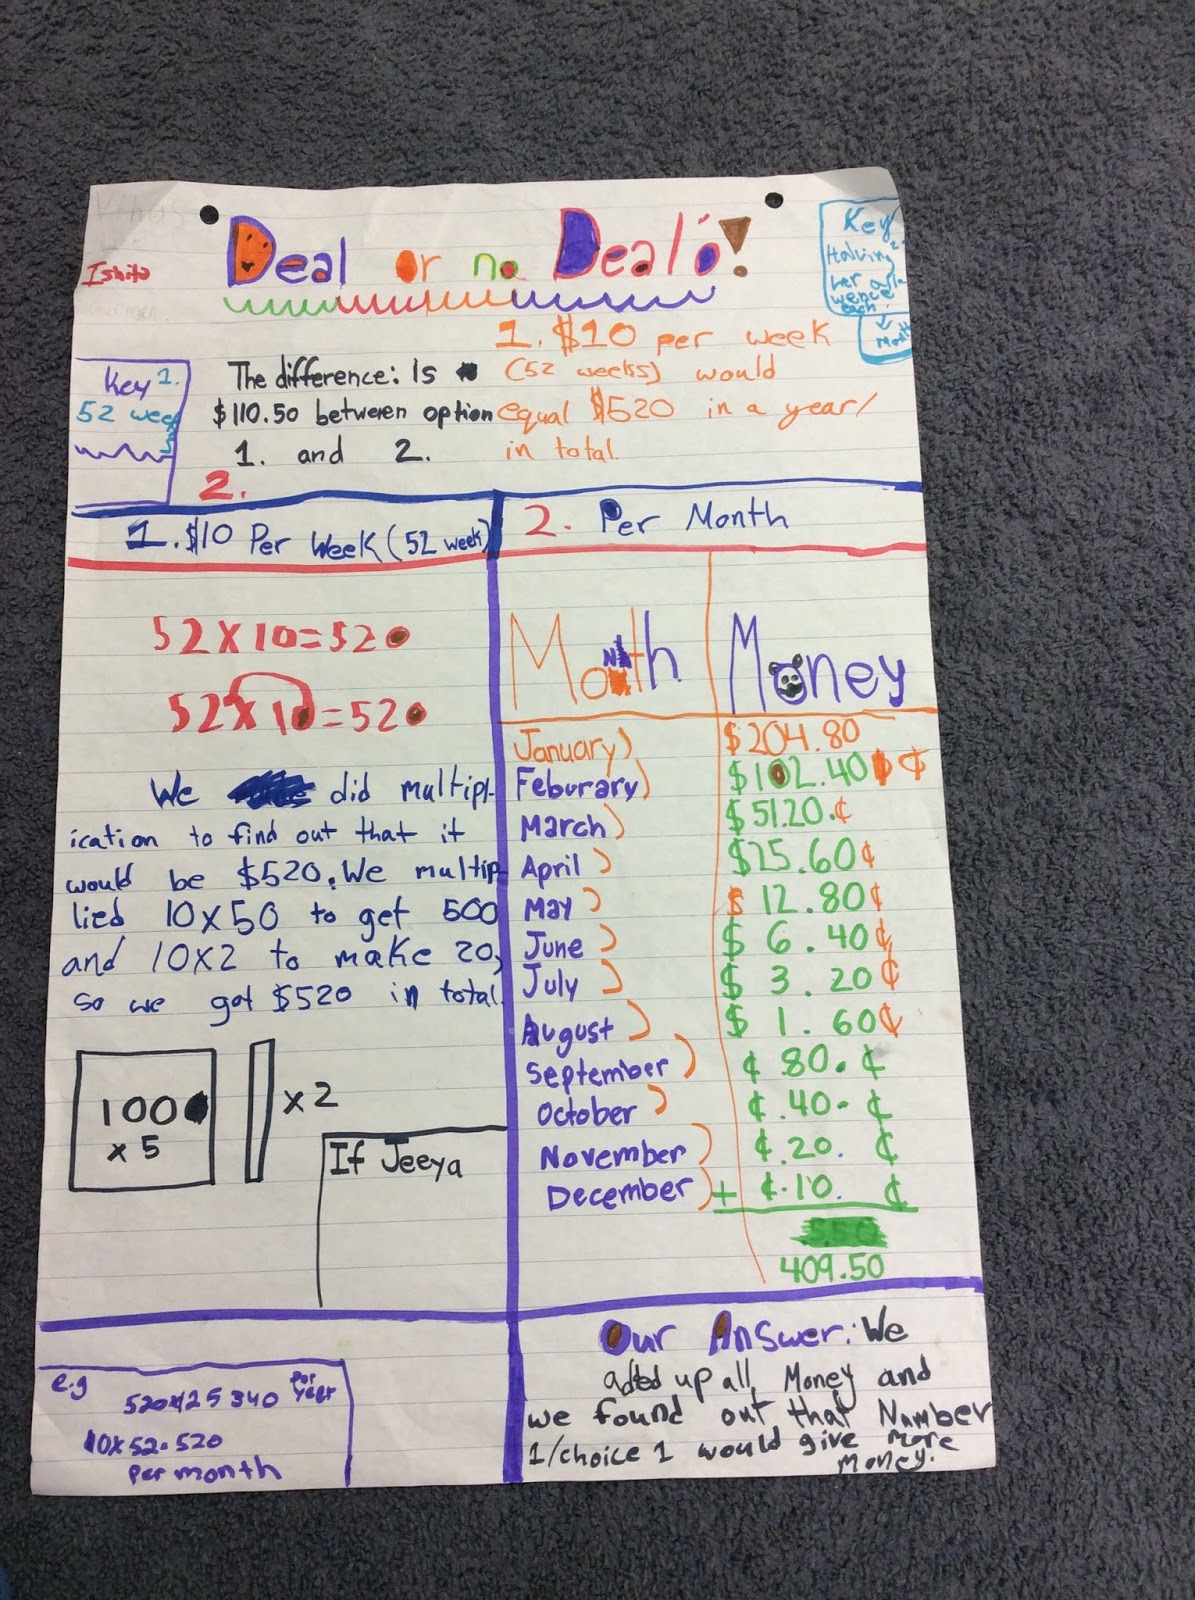 Deal or no Deal!
Ishita
Key
Halving
Key 1.
52 week
The difference: Is
$110.50 between option
1. and 2.
1. $10 per week
(52 weeks) would
equal $520 in a year/
in total.
2.
1. $10 Per Week (52 week)
52x10=520
52x10=520
We did multipl-
ication to find out that it
would be $520. We multip-
lied 10x50 to get 500
and 10x2 to make 20,
so we got $520 in total.
100
x 5
x 2
If Jeeya
2. Per Month
Month Money
January) $204.80
Feburary) $102.40 ¢
March) $51.20.¢
April) $25.60¢
May) $12.80¢
June) $6.40¢
July) $3.20¢
August) $1.60¢
September) ¢ 80. ¢
October) ¢.40- ¢
November) ¢.20. ¢
December) + ¢.10. ¢
409.50
e.g
per
year
10x52=520
per month
Our Answer: We
added up all Money and
we found out that Number
1/choice 1 would give more
money.